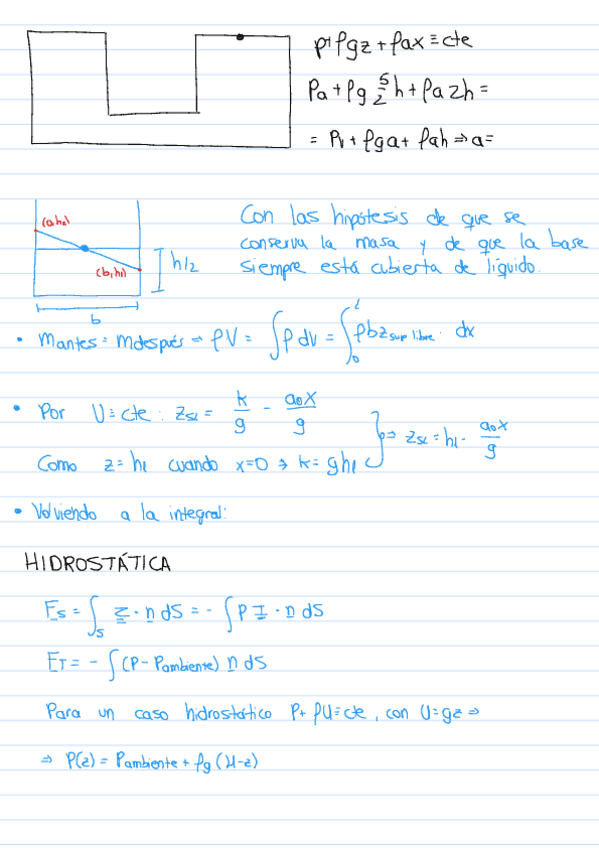 p+ρgz+ρax≡cte
Pa+ρg 5/2 h+ρa2h=
= Pv+ρga+ρah⇒a=
Con las hipótesis de que se
conserva la masa y de que la base
siempre está cubierta de líquido.
(b,h1)
h/2
b
• Mantes = Mdespués ⇒ ρV = ∫ρdv = ∫₀ᴸ ρbz sup libre · dx
• Por U≡cte: zSL = k/g - a0x/g
⇒ zSL = h1 - a0x/g
Como z=h1 cuando x=0 ⇒ k=gh1
• Volviendo a la integral:
HIDROSTÁTICA
Fs = ∫s Σ · n dS = - ∫P I · n dS
FT = - ∫(P - Pambiente) n dS
Para un caso hidrostático P+ρU≡cte, con U=gz ⇒
⇒ P(z) = Pambiente + ρg(H-z)